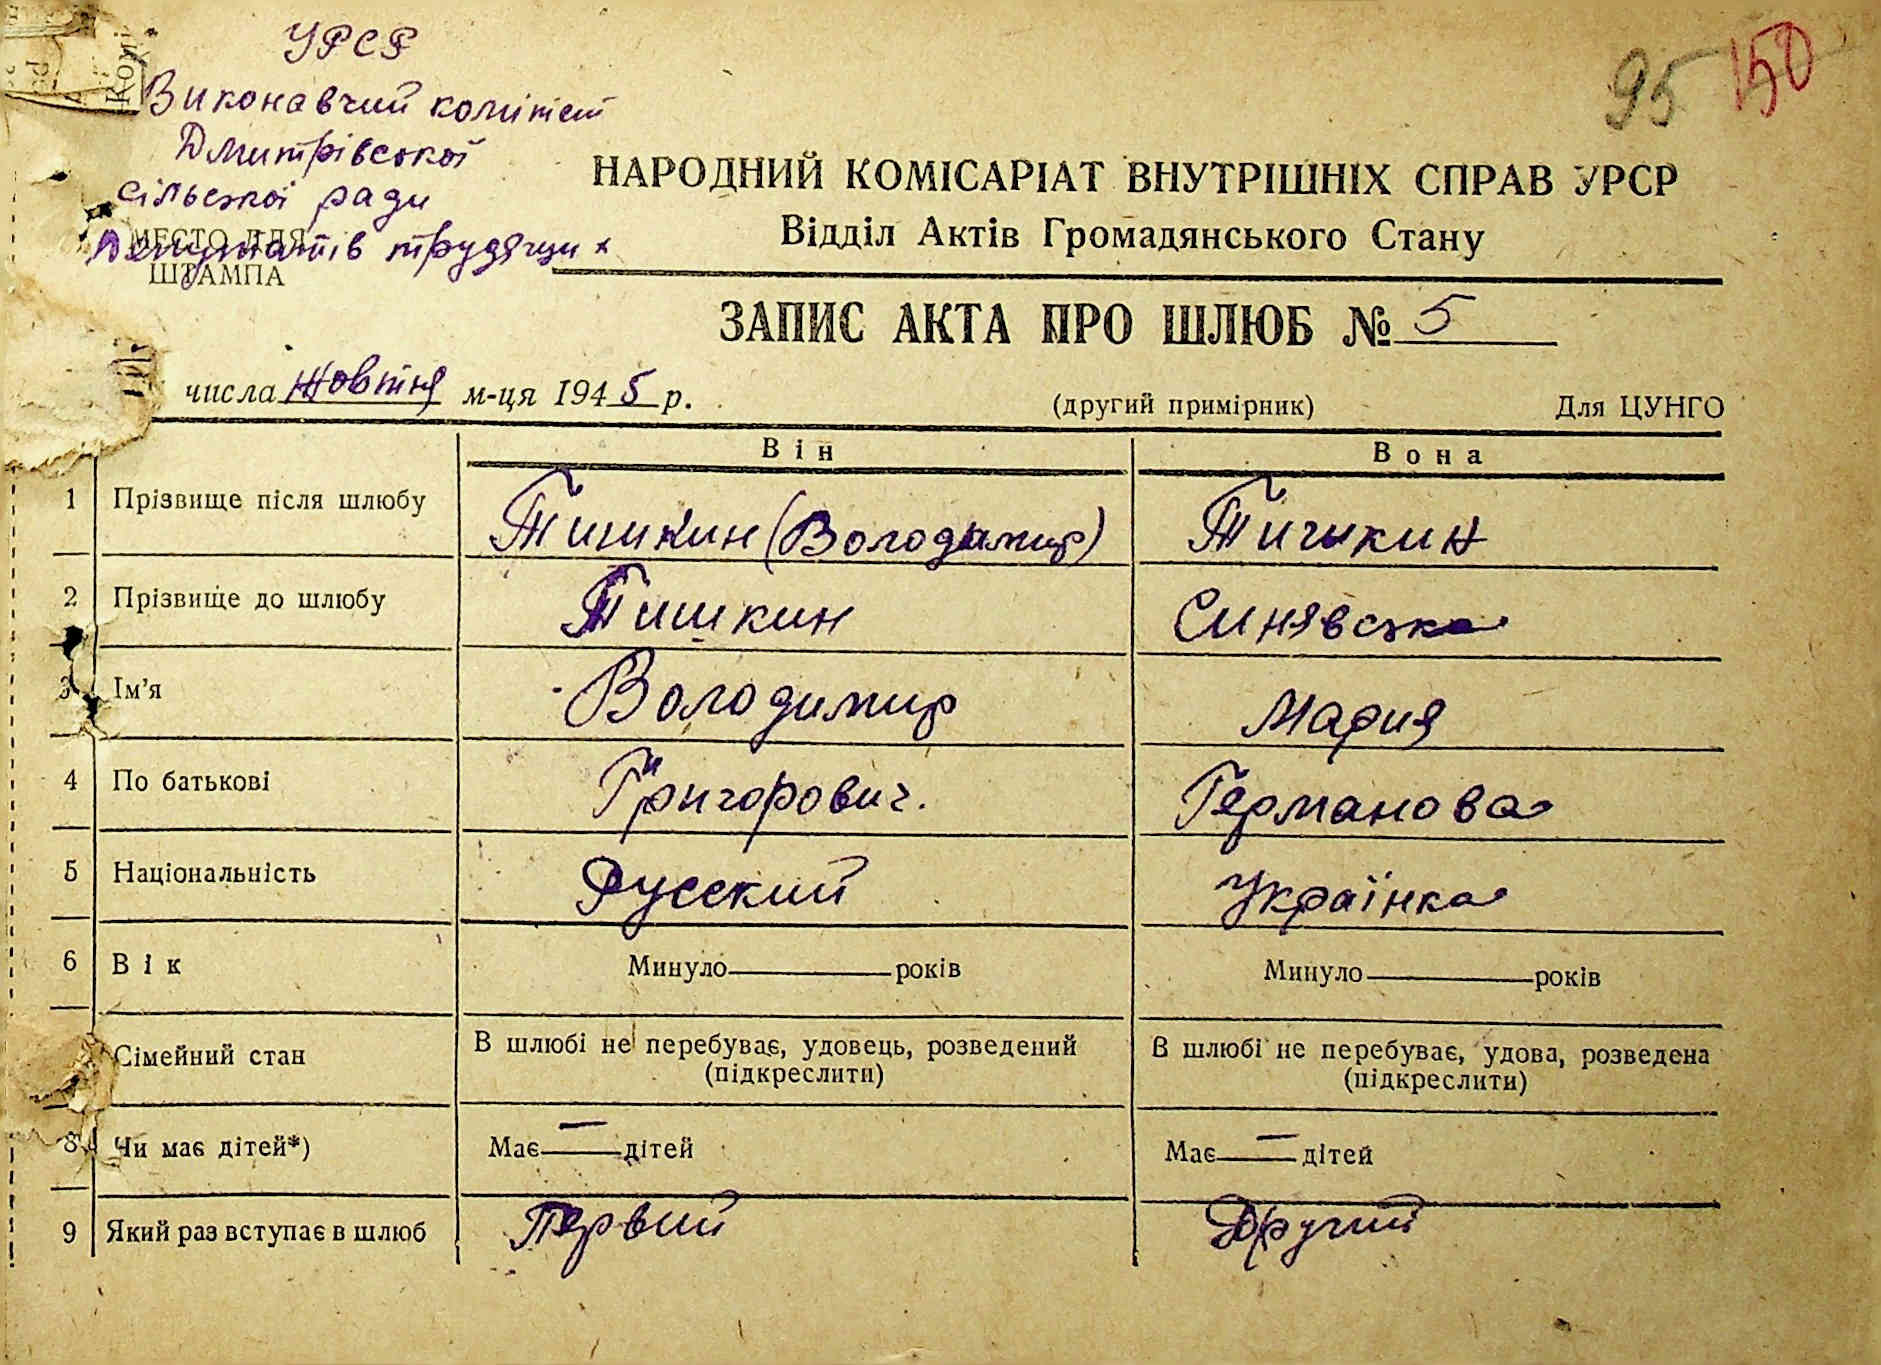 УРСР
Виконавчий комітет
Дмитрівської
сільської ради
Депутатів трудящих
МЕСТО ДЛЯ
ШТАМПА
95 150
НАРОДНИЙ КОМІСАРІАТ ВНУТРІШНІХ СПРАВ УРСР
Відділ Актів Громадянського Стану
ЗАПИС АКТА ПРО ШЛЮБ № 5
числа жовтня м-ця 1945 р.
(другий примірник) Для ЦУНГО
Він Вона
1 Прізвище після шлюбу Тишкин (Володимир) Тишкин
2 Прізвище до шлюбу Тишкин Синявська
3 Ім'я Володимир Мария
4 По батькові Григорович. Германова
5 Національність Русский Українка
6 Вік Минуло років Минуло років
Сімейний стан В шлюбі не перебуває, удовець, розведений В шлюбі не перебуває, удова, розведена
(підкреслити) (підкреслити)
8 Чи має дітей*) Має — дітей Має — дітей
9 Який раз вступає в шлюб Первий Другий